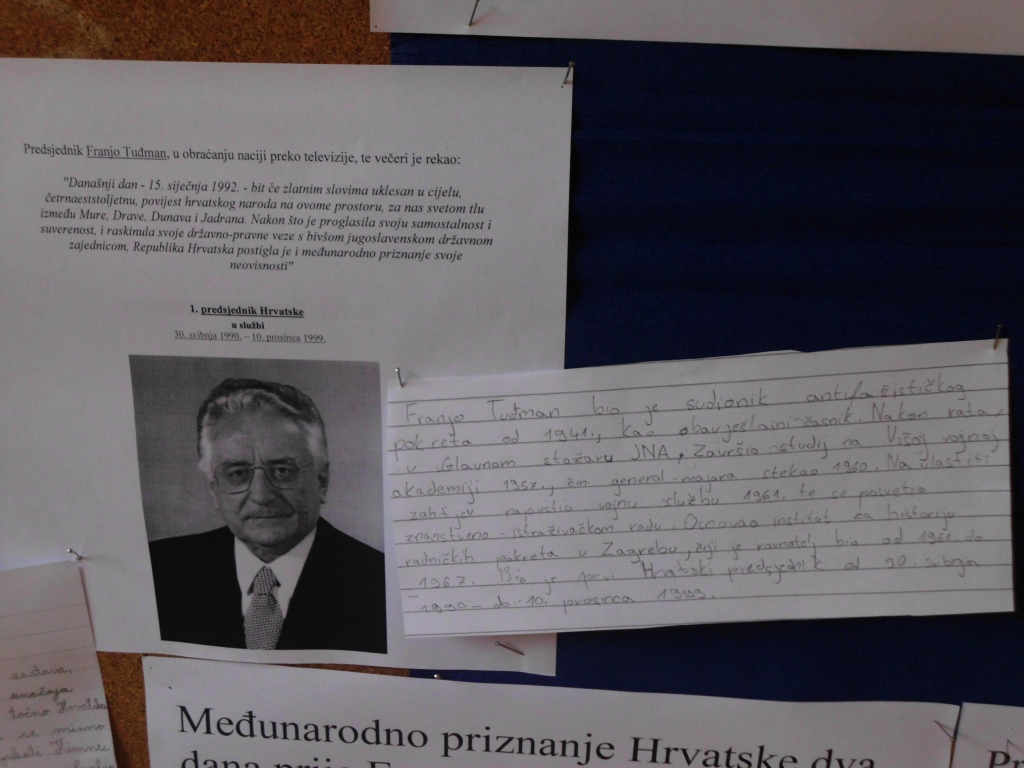 Predsjednik Franjo Tuđman, u obraćanju naciji preko televizije, te večeri je rekao:
"Današnji dan - 15. siječnja 1992. - bit će zlatnim slovima uklesan u cijelu,
četrnaeststoljetnu, povijest hrvatskog naroda na ovome prostoru, za nas svetom tlu
između Mure, Drave, Dunava i Jadrana. Nakon što je proglasila svoju samostalnost i
suverenost, i raskinula svoje državno-pravne veze s bivšom jugoslavenskom državnom
zajednicom, Republika Hrvatska postigla je i međunarodno priznanje svoje
neovisnosti"
1. predsjednik Hrvatske
u službi
30. svibnja 1990. – 10. prosinca 1999.
Franjo Tuđman bio je sudionik antifašističkog
pokreta od 1941., kao obavještajni časnik. Nakon rata,
u Glavnom stožaru JNA, Završio studij na Višoj vojnoj
akademiji 1957., čin general-majora stekao 1960. Na vlastiti
zahtjev napustio vojnu službu 1961. te se posvetio
znanstveno-istraživačkom radu. Osnovao institut za historiju
radničkih pokreta u Zagrebu, čiji je ravnatelj bio od 1961. do
1967. Bio je prvi Hrvatski predsjednik od 30. svibnja
1990 – do 10. prosinca 1999.
točno Hrvatska
se mimo
Međunarodno priznanje Hrvatske dva
dana prije
Pr